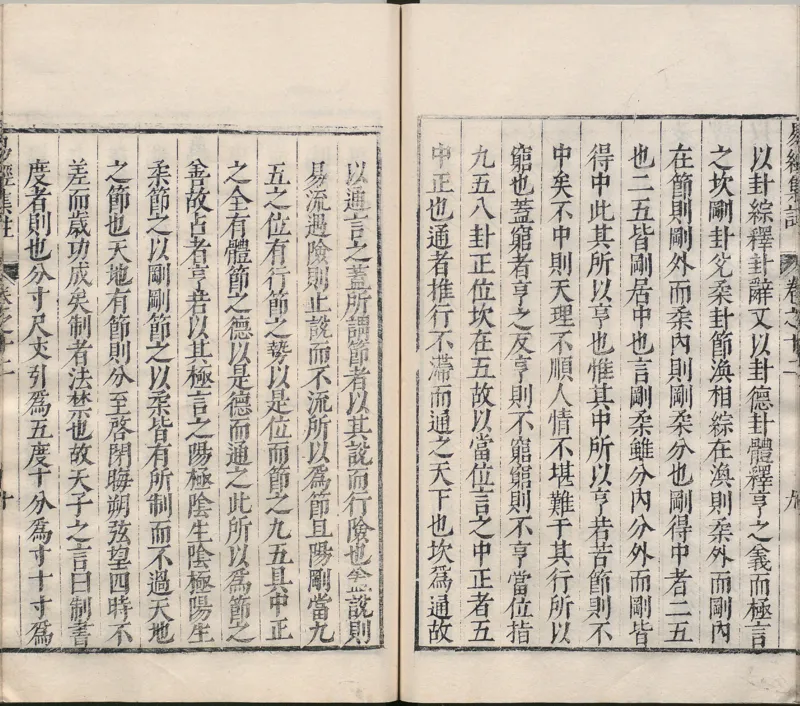 以卦綜釋卦辭又以卦德卦體釋亨之義而極言
之坎剛卦兌柔卦節渙相綜在渙則柔外而剛內
在節則剛外而柔內則剛柔分也剛得中者二五
也二五皆剛居中也言剛柔雖分內分外而剛皆
得中此其所以亨也惟其中所以亨若苦節則不
中矣不中則天理不順人情不堪難于其行所以
窮也蓋窮者亨之反亨則不窮窮則不亨當位指
九五八卦正位坎在五故以當位言之中正者五
中正也通者推行不滯而通之天下也坎爲通故
以通言之蓋所謂節者以其說而行險也蓋說則
易流遇險則止說而不流所以爲節且陽剛當九
五之位有行節之勢以是位而節之九五具中正
之全有體節之德以是德而通之此所以爲節之
善故占者亨若以其極言之陽極陰生陰極陽生
柔節之以剛剛節之以柔皆有所制而不過天地
之節也天地有節則分至啓閉晦朔弦望四時不
差而歲功成矣制者法禁也故天子之言曰制書
度者則也分寸尺丈引爲五度十分爲寸十寸爲
易經集註
卷之十二
十